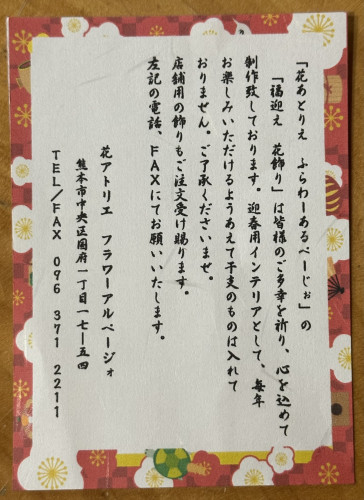 「花あとりえ　ふらわーあるぺーじぉ」の
「福迎え　花飾り」は皆様のご多幸を祈り、心を込めて
制作致しております。迎春用インテリアとして、毎年
お楽しみいただけるようあえて干支のものは入れて
おりません。ご了承くださいませ。
店舗用の飾りもご注文受け賜ります。
左記の電話、FAXにてお願いいたします。
花アトリエ　フラワーアルページォ
熊本市中央区国府一丁目一七ー五四
TEL/FAX 096 371 2211